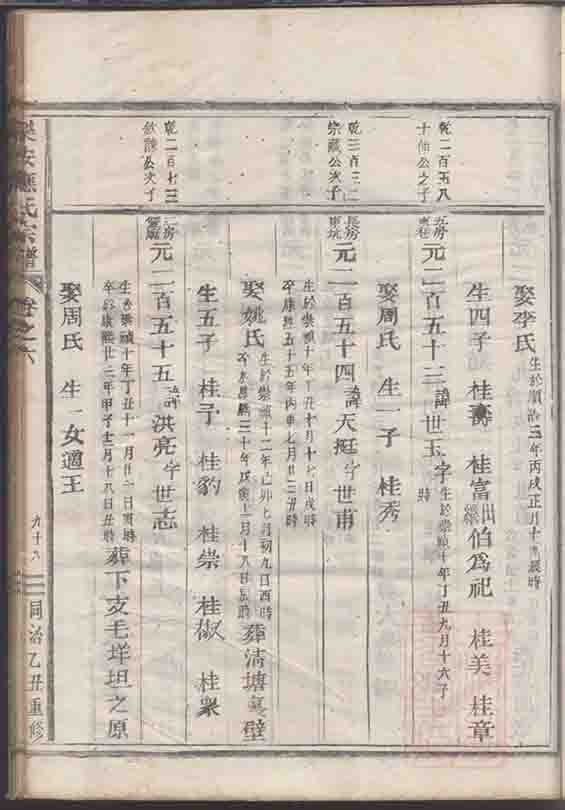 乾二百五八
十仙公之子
乾三百三二
宗蔵公次子
乾二百七三
欽公次子
娶李氏 生於順治三年丙戌正月十日辰時
生四子 桂壽 桂富出繼伯爲祀 桂美 桂章
元二百五十三諱世玉字 生於崇禎十年丁丑九月十六子時
娶周氏 生一子 桂秀
長房
東坑
元二百五十四諱天挺字世甫 生於崇禎十年丁丑十月十七日戌時
卒康熙五十五年丙申七月廿三丑時
娶姚氏 生於崇禎十二年己卯七月初九日酉時 葬清塘壁
生五子 桂予 桂豹 桂崇 桂椒 桂衆
元二百五十五諱洪亮字世志
生於崇禎十年丁丑十一月廿一日寅時
卒於康熙廿三年甲子十二月十八日丑時 葬下支毛垟坦之原
娶周氏 生一女適王
樂安應氏宗譜
卷之六
九十九
同治乙丑重修